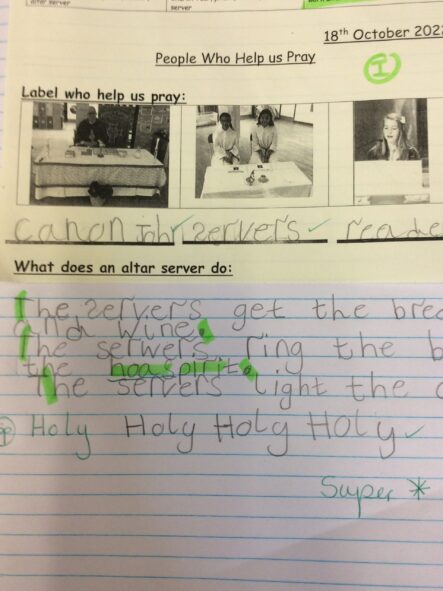 altar server
server
18th October 202
People Who Help us Pray
I
Label who help us pray:
canon John servers reade
What does an altar server do:
The servers get the brea
and wine.
The serwers ring the b
the hoaspirit.
The servers light the c
Holy Holy Holy Holy
Super *